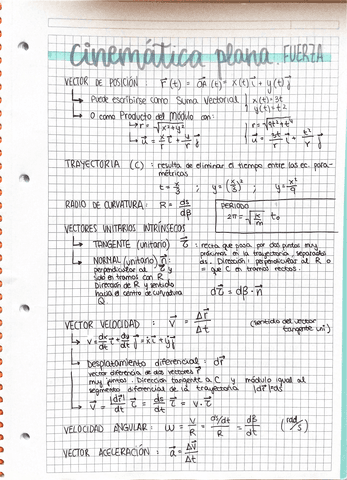 cinemática plana. FUERZA
VECTOR DE POSICIÓN : r⃗(t) = OA⃗(t) = x(t)i⃗ + y(t)j⃗
↳ Puede escribirse como Suma Vectorial | x(t)=3t
y(t)=t²
↳ O como Producto del módulo con:
↳ r = √x²+y² | r=√9t²+t⁴
↳ u⃗ = x/r i⃗ + y/r j⃗ | u⃗ = 3t/r i⃗ + t²/r j⃗
TRAYECTORIA (C) : resulta de eliminar el tiempo entre las ec. para-
métricas
t = x/3 ; y = (x/3)² ; y = x²/9
RADIO DE CURVATURA: R = ds/dβ
PERIODO
2π = √k/m t₀
VECTORES UNITARIOS INTRÍNSECOS
↳ TANGENTE (unitario) τ⃗ : recta que pasa por dos puntos muy
próximos en la trayectoria, separados
ds. Dirección: perpendicular al R o
= que C en tramos rectos.
↳ NORMAL (unitario) n⃗:
perpendicular al τ⃗ y
solo en tramos con R
Dirección de R y sentido
hacia el centro de curvatura
dτ⃗ = dβ · n⃗
VECTOR VELOCIDAD : V⃗ = Δr⃗/Δt (sentido del vector
tangente uni)
↳ v = dx/dt i⃗ + dy/dt j⃗ = ẋi⃗ + ẏj⃗
↳ Desplazamiento diferencial : dr⃗
vector diferencia de dos vectores r⃗
muy juntos. Dirección tangente a C y módulo igual al
segmento diferencial de la trayectoria |dr⃗|=ds
↳ V⃗ = |dr⃗|/dt τ⃗ = ds/dt τ⃗ = v · τ⃗
VELOCIDAD ANGULAR : ω = V/R = ds/dt/R = dβ/dt (rad/s)
VECTOR ACELERACIÓN : a⃗ = ΔV⃗/Δt